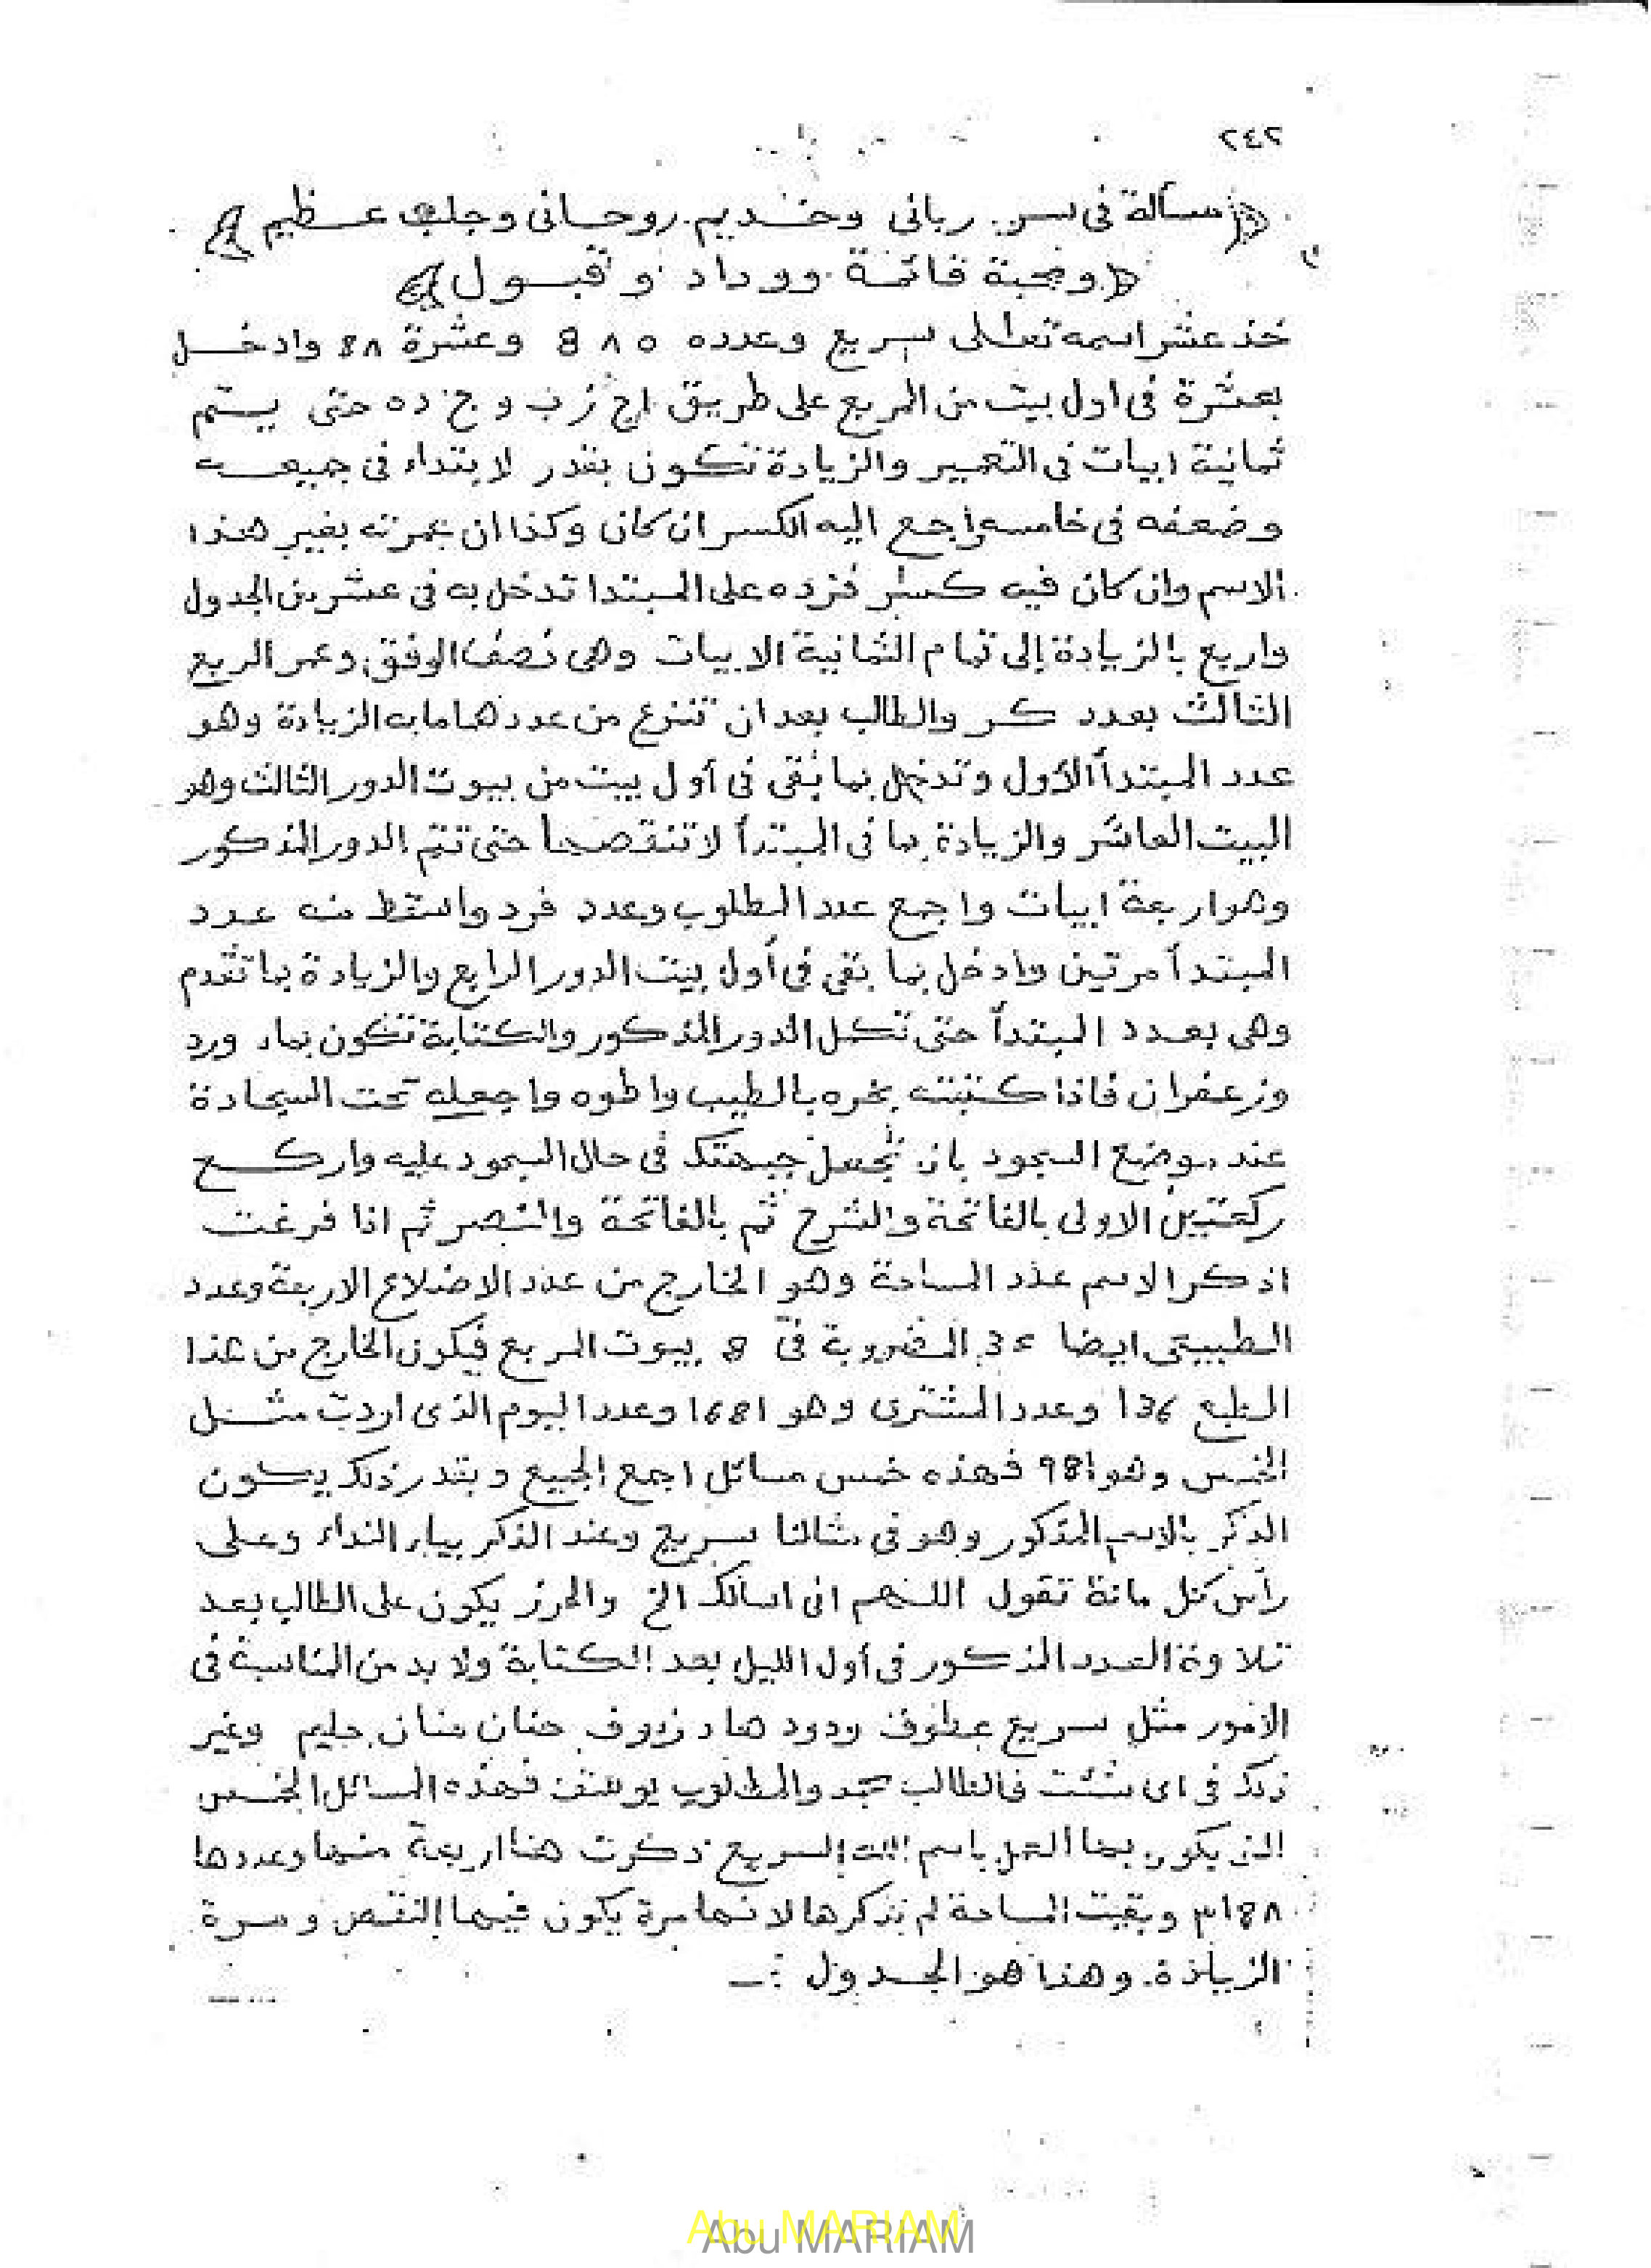 ٢٤٢
مسألة فى سر ربانى وخديم روحانى وجلب عظيم
ومحبة قائمة ووداد وقبول
خذ عشر اسمه تعالى سريع وعدده ٨٥ 8 وعشرة 8٨ وادخل
بعشرة فى اول بيت من المربع على طريق اح زب و ج ده حتى يتم
ثمانية ابيات فى التعمير والزيادة تكون بقدر لابتداء فى جميعه
وضعفه فى خامسه واجمع اليه الكسر ان كان وكذا ان عمرته بغير هذا
الاسم وان كان فيه كسر فزده على المبتدا تدخل به فى عشر من الجدول
واربع بالزيادة إلى تمام الثمانية الابيات وهى نصف الوفق وعمر الربع
الثالث بعدد كر والطالب بعد ان تنزع من عددها مابه الزيادة وهو
عدد المبتدأ الأول وتدخل بما بقى فى أول بيت من بيوت الدور الثالث وهو
البيت العاشر والزيادة بما فى المبتدأ لا تنقصها حتى تتم الدور المذكور
وهو اربعة ابيات واجمع عدد المطلوب وعدد فرد واسقط منه عدد
المبتدأ مرتين وادخل بما بقى فى أول بيت الدور الرابع والزيادة بما تقدم
وهى بعدد المبتدأ حتى تكمل الدور المذكور والكتابة تكون بماء ورد
وزعفران فاذا كتبته بخره بالطيب واطوه واجعله تحت السجادة
عند موضع السجود بان تجعل جبهتك فى حال السجود عليه واركع
ركعتين الاولى بالفاتحة والشرح ثم بالفاتحة والنصر ثم اذا فرغت
اذكر الاسم عدد المساحة وهو الخارج من عدد الاضلاع الاربعة وعدد
الطبيعى ايضا 3٤ المضروبة فى 8 بيوت المربع فيكون الخارج من هذا
الطبع 136 وعدد المشترى وهو 1681 وعدد اليوم الذى اردت مثل
الخميس وهو 981 فهذه خمس مسائل اجمع الجميع وبقدر ذلك يكون
الذكر بالاسم المذكور وهو فى مثالنا سريع وعند الذكر بياء النداء وعلى
رأس كل مائة تقول اللهم انى اسالك الخ والحرز يكون على الطالب بعد
تلاوة العدد المذكور فى أول الليل بعد الكتابة ولا بد من المناسبة فى
الامور مثل سريع عطوف ودود هاد رؤوف حنان منان حليم وغير
ذلك فى اى شئت فالطالب محمد والمطلوب يوسف فهذه المسائل الخمس
الذى يكون بها العمل باسم الله السريع ذكرت هنا اربعة منها وعددها
وبقيت المساحة لم نذكرها لانها مرة يكون فيها النقص ومرة
الزيادة وهنا هو الجدول :ـ
Abu MARIAM